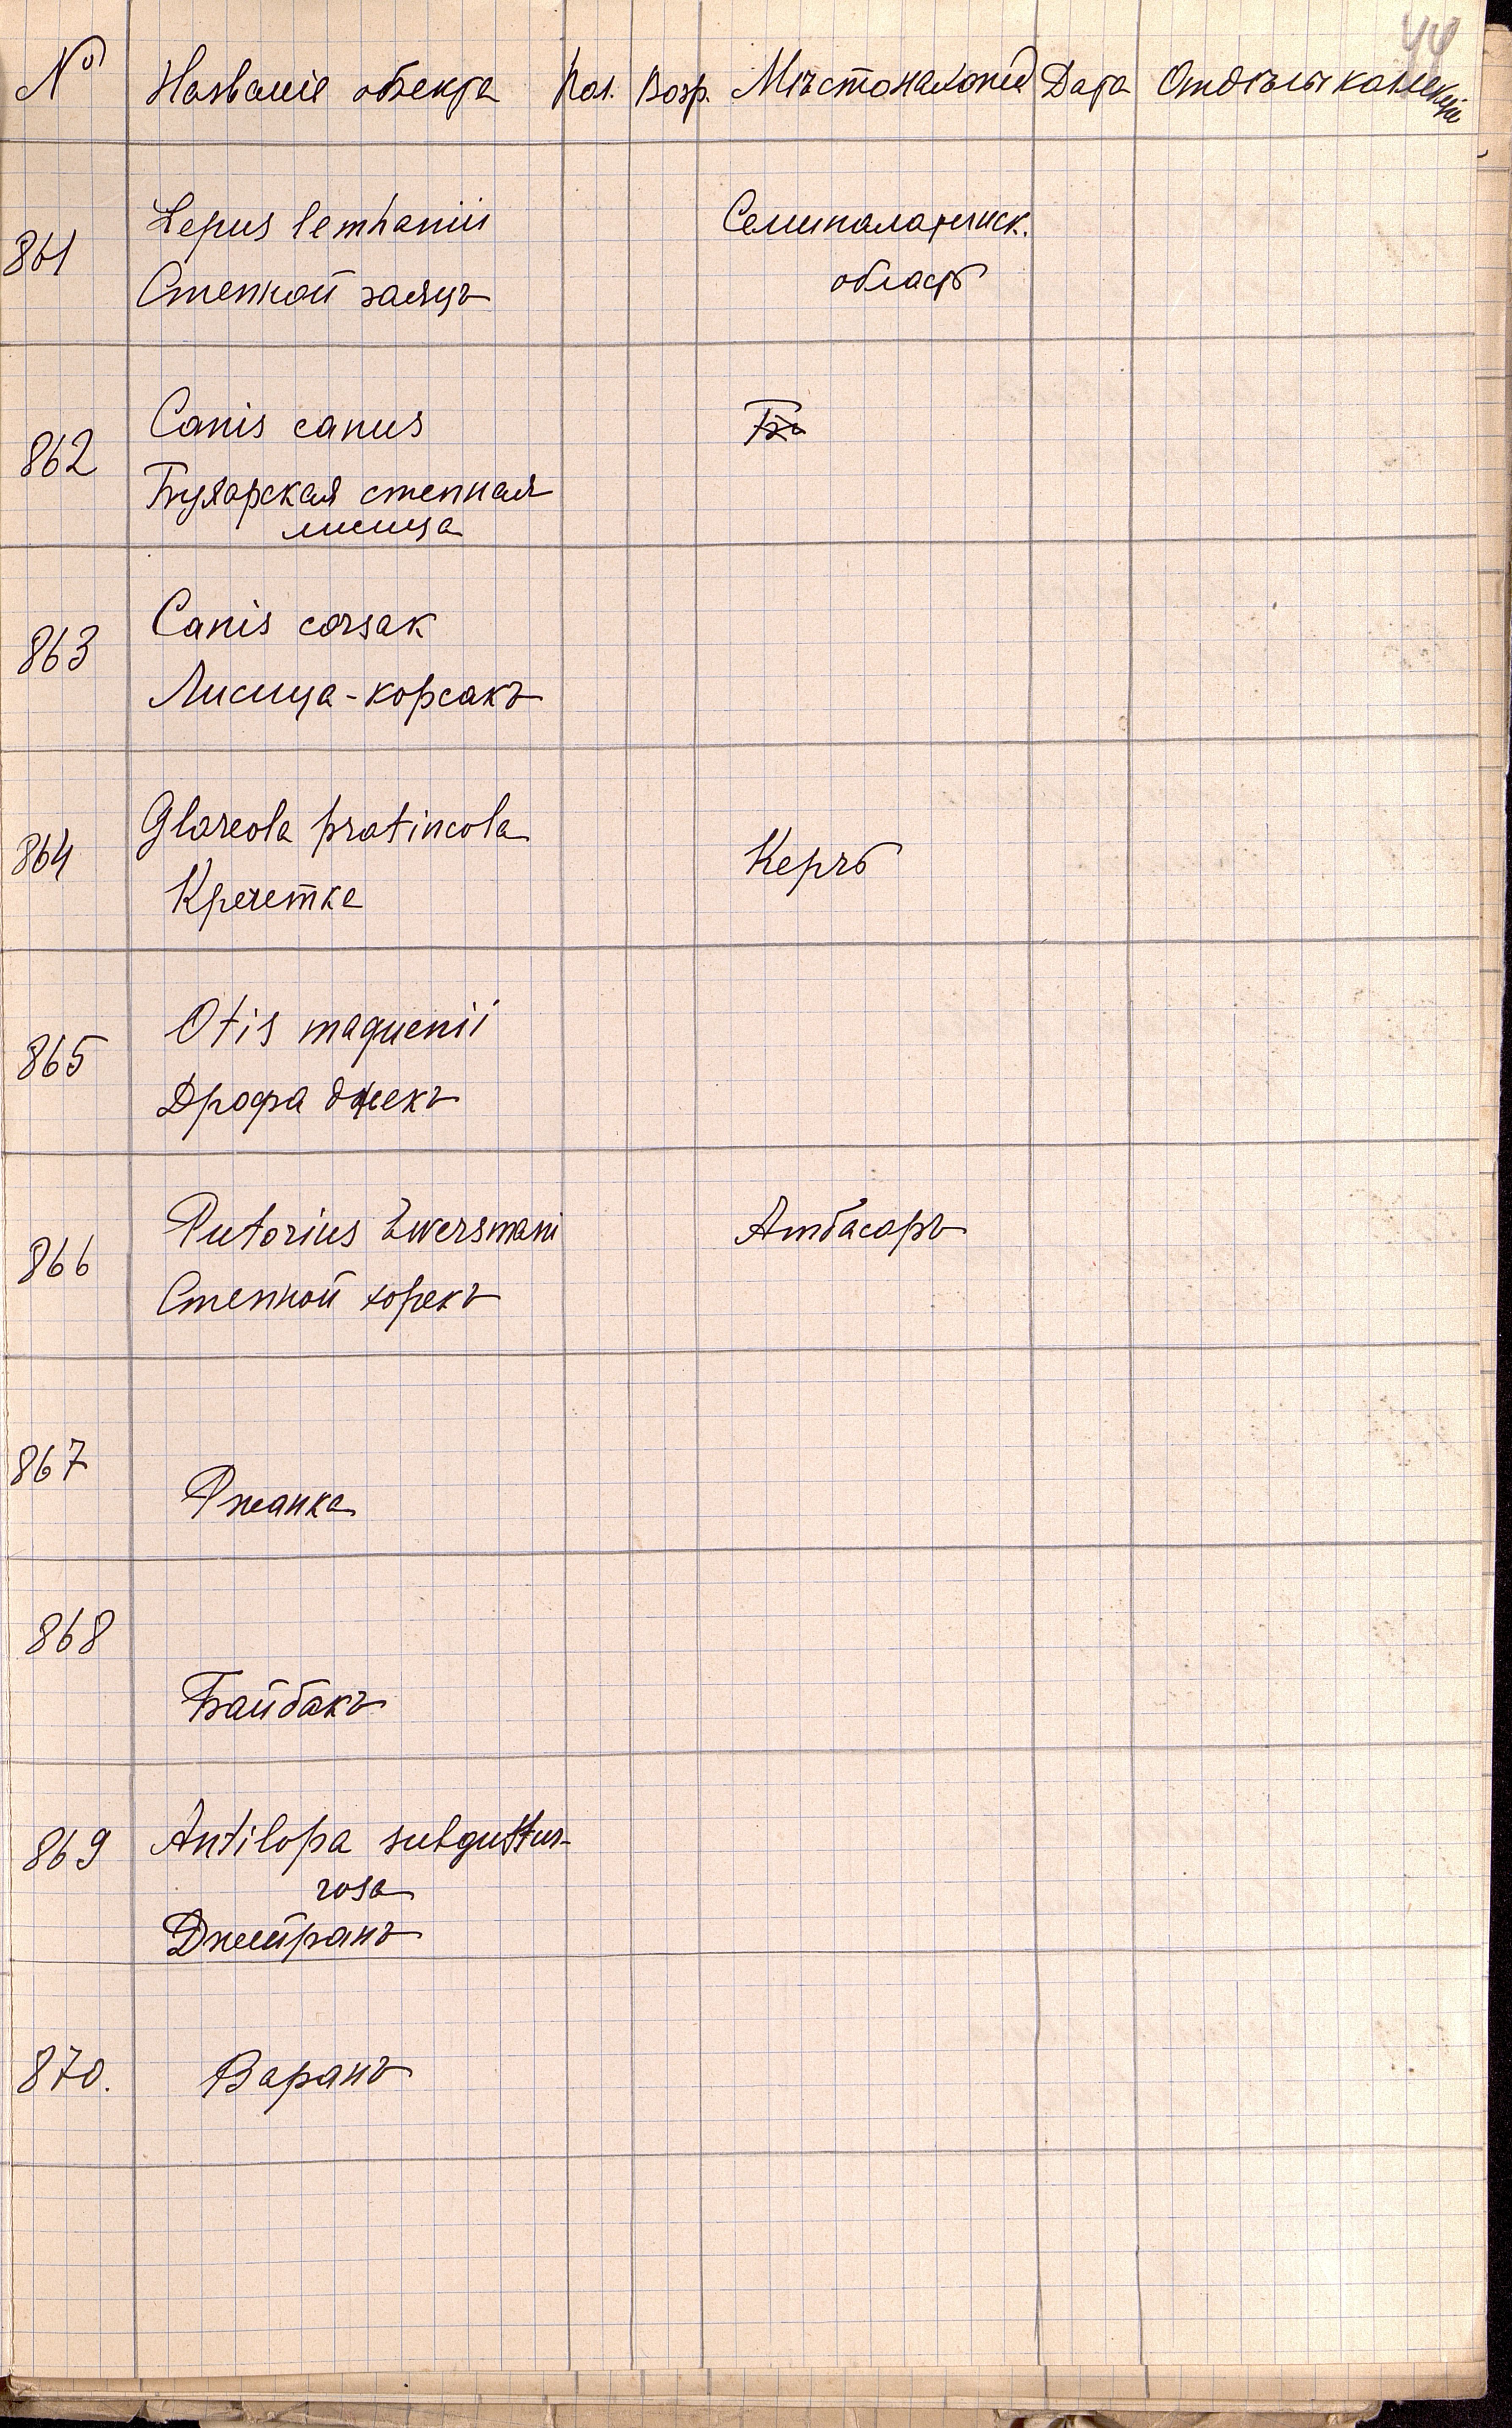 44
№ Названіе объекта Пол. Возр. Мѣстонахожд Дата Отдѣлы коллекціи
861 Lepus lemhanii Семипалатинск.
Степной заяцъ область
862 Canis canus
Бухарская степная
лисица
863 Canis corsak
Лисица-корсакъ
864 Glareola pratincola Керчь
Кречетка
865 Otis maquenii
Дрофа джекъ
866 Putorius Ewersmani Атбасаръ
Степной хорекъ
867
Ржанка
868
Байбакъ
869 Antilopa subguttur-
rosa
Джейранъ
870. Варанъ